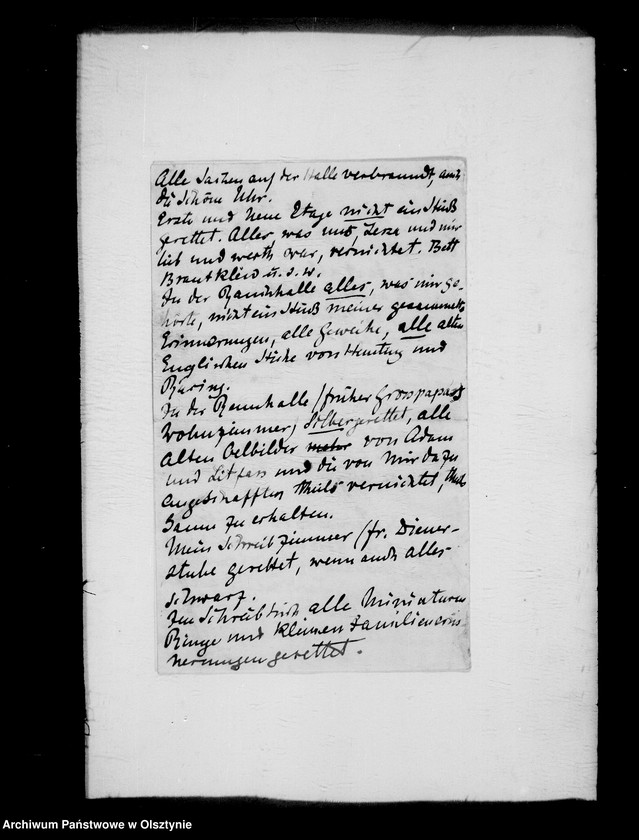 Alle Sachen auf der Halle verbrannt, auch
die schöne Uhr.
Erste und neue Etage nicht ein Stück
gerettet. Alles was uns, und mir
lieb und werth war, vernichtet. Bett
Brautkleid u.s.w.
In der Rauchhalle alles, was mir ge-
hörte, nicht ein Stück meiner gesammelten
Erinnerungen, alle Geweihe, alle alten
Englischen Stiche von Hunting und
Racing.
In der Rennhalle (früher Grosspapas
Wohnzimmer) Silber gerettet, alle
Alten Oelbilder von Adam
und und die von mir dazu
angeschafften theils vernichtet, theils
kaum zu erhalten.
Mein Schreibzimmer (fr. Diener-
stube gerettet, wenn auch alles
schwarz.
Im Schreibtisch alle Miniaturen
Ringe und kleinen Familienerin-
nerungen gerettet.
Archiwum Państwowe w Olsztynie